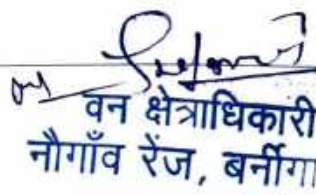 वन क्षेत्राधिकारी
नौगाँव रेंज, बर्नीगा